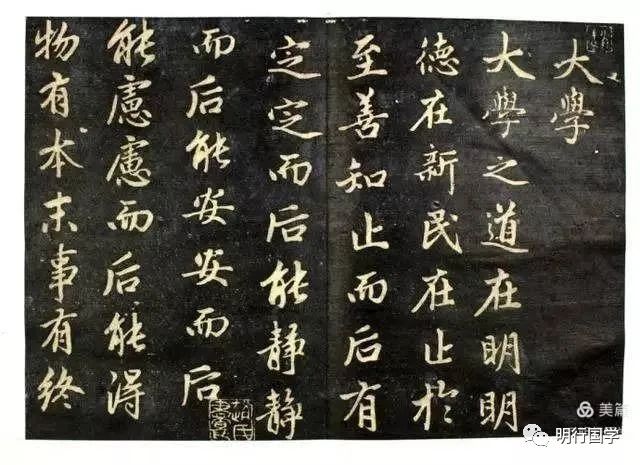 大學
大學之道在明明
德在新民在止於
至善知止而后有
定定而后能静静
而后能安安而后
能慮慮而后能得
物有本末事有終
美篇
明行国学